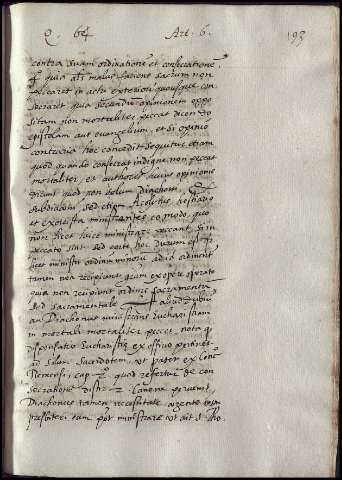 Q. 64 Art. 6. 193
contra suam ordinationem et consecrationem
quia alius malus faciens sacrum non
peccaret in actu exteriori quousque con
secraret quia secundum opinionem oppo
sitam non mortaliter peccat dicendo
epistolam aut evangelium, et si opinio
contraria hoc concedit sequitur etiam
quod quando consecrat indigne non peccat
mortaliter, et authores huius opinionis
dicunt quod non solum Diaconus,
subdiaconus sed etiam Acolitus, hostiario
et exorcista ministrantes eo modo, quo
non licet laice ministrare peccant, si in
peccato sint sed certe hoc durum est
licet ministri ordinum minorum
tamen non recipiunt gratiam ex opere operato
quia non recipiunt ordines sacramentum
sed sacramentale aliud dubium
an Diaconus ministrans Eucharistiam
in mortali mortaliter peccet, nota quod
dispensatio Eucharistiæ ex officio pertinet
ad solum Sacerdotem, ut patet ex Conc.
quod refertur de con
secratione dist. Canone pervenit,
Diaconus tamen necessitate urgente
presbiteri eam potest ministrare ut ait S. Tho